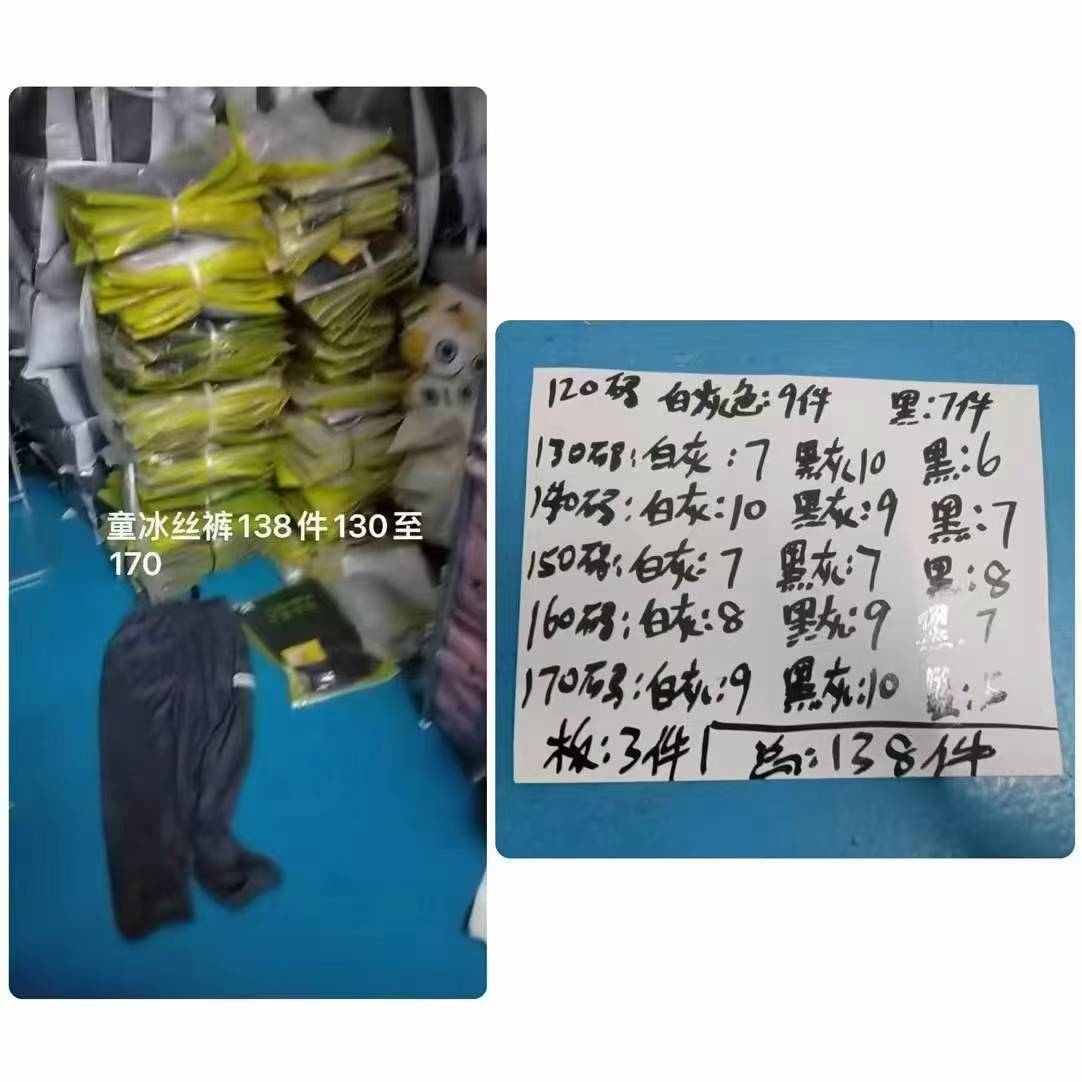 童冰丝裤138件130至
170
120码 白灰色:9件 黑:7件
130码:白灰:7 黑灰10 黑:6
140码:白灰:10 黑灰:9 黑:7
150码:白灰:7 黑灰:7 黑:8
160码:白灰:8 黑灰:9 黑 7
170码:白灰:9 黑灰:10 :5
板:3件 总:138件